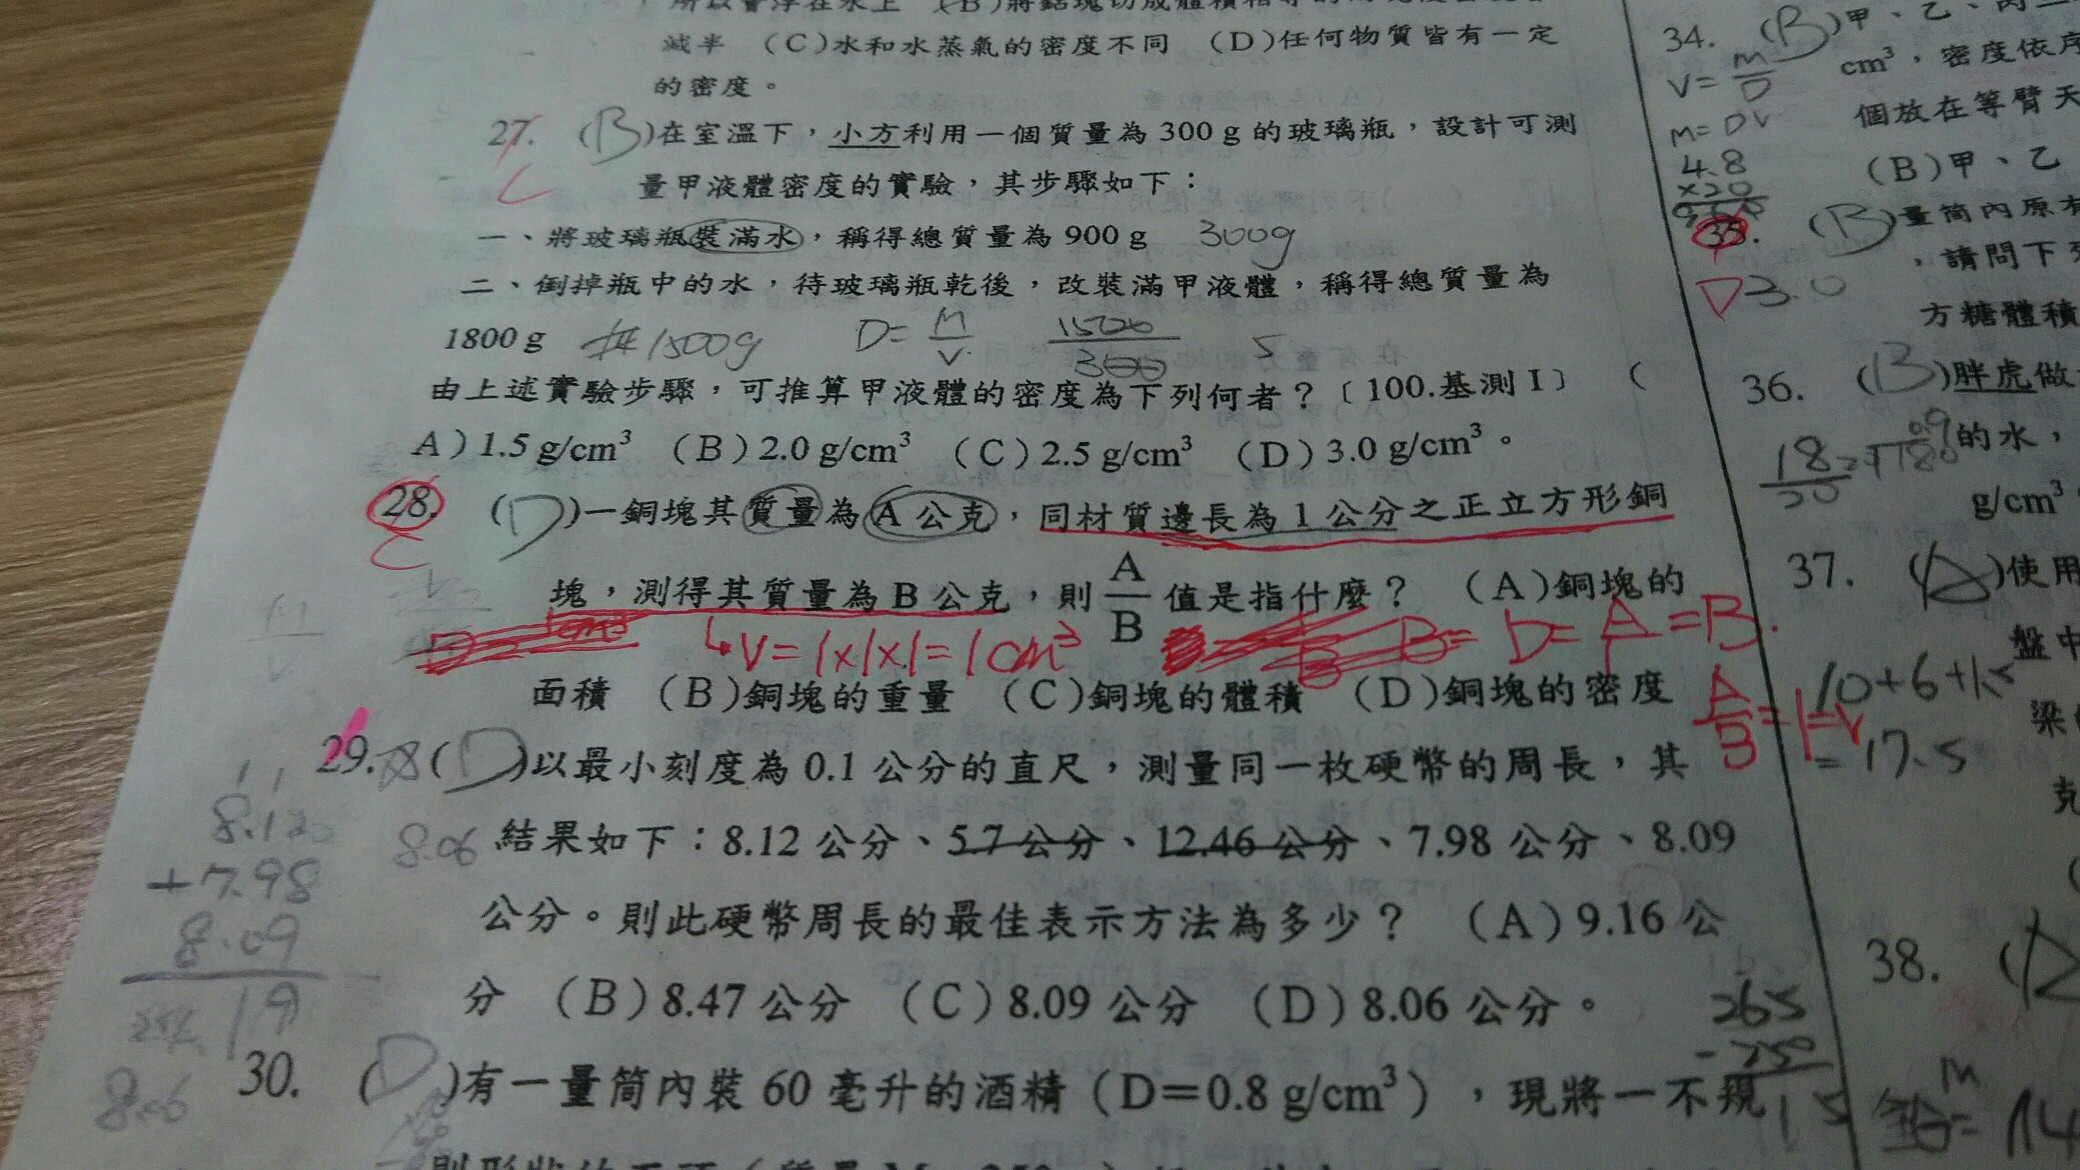 減半 (C)水和水蒸氣的密度不同 (D)任何物質皆有一定
的密度。
27. (B)在室溫下，小方利用一個質量為 300 g 的玻璃瓶，設計可測
C
量甲液體密度的實驗，其步驟如下：
一、將玻璃瓶裝滿水，稱得總質量為 900 g 300g
二、倒掉瓶中的水，待玻璃瓶乾後，改裝滿甲液體，稱得總質量為
1800 g 1500g D=M/V 1500/300 5
由上述實驗步驟，可推算甲液體的密度為下列何者？〔100.基測 I〕 (
A)1.5 g/cm³ (B)2.0 g/cm³ (C)2.5 g/cm³ (D)3.0 g/cm³。
28. (D)一銅塊其質量為 A 公克，同材質邊長為 1 公分之正立方形銅
C
塊，測得其質量為 B 公克，則 A/B 值是指什麼？ (A)銅塊的
V=1×1×1=1cm³ D=A/1=B.
面積 (B)銅塊的重量 (C)銅塊的體積 (D)銅塊的密度
A/B=1=V
M/V
29. (D)以最小刻度為 0.1 公分的直尺，測量同一枚硬幣的周長，其
結果如下：8.12 公分、5.7 公分、12.46 公分、7.98 公分、8.09
8.06
公分。則此硬幣周長的最佳表示方法為多少？ (A)9.16 公
分 (B)8.47 公分 (C)8.09 公分 (D)8.06 公分。
8.12
+7.98
8.09
19
8.06
265
-250
15
30. (D)有一量筒內裝 60 毫升的酒精（D=0.8 g/cm³），現將一不規
34. (B)甲、乙、丙
V=M/D
cm³，密度依序
m=DV
個放在等臂天
4.8
×20
(B)甲、乙
35. (B)量筒內原有
D 3.0
，請問下列
方糖體積
36. (B)胖虎做
18/20 0.9
的水，
g/cm³
37. (A)使用
盤中
10+6+1.5
=17.5
梁
克
38. (
M
=14